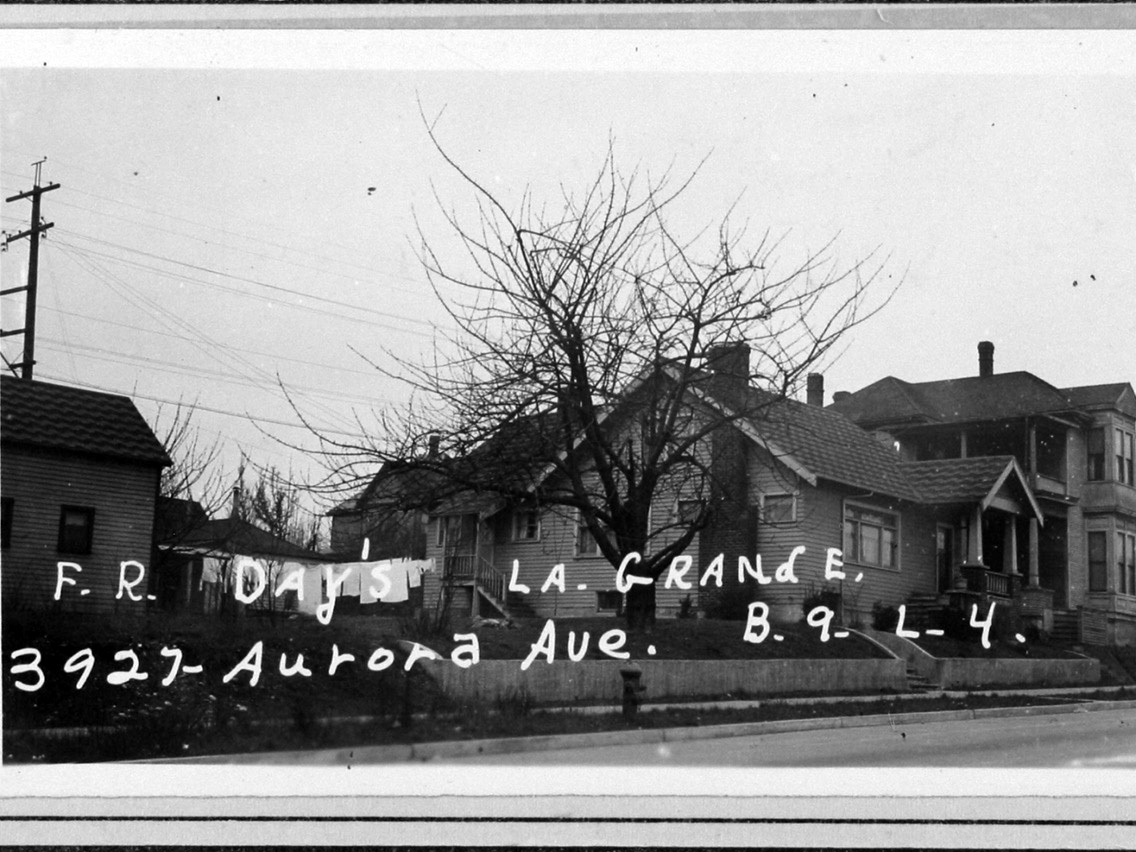 F. R. Day's LA. GRANdE.
3927- Aurora Ave. B. 9- L- 4.